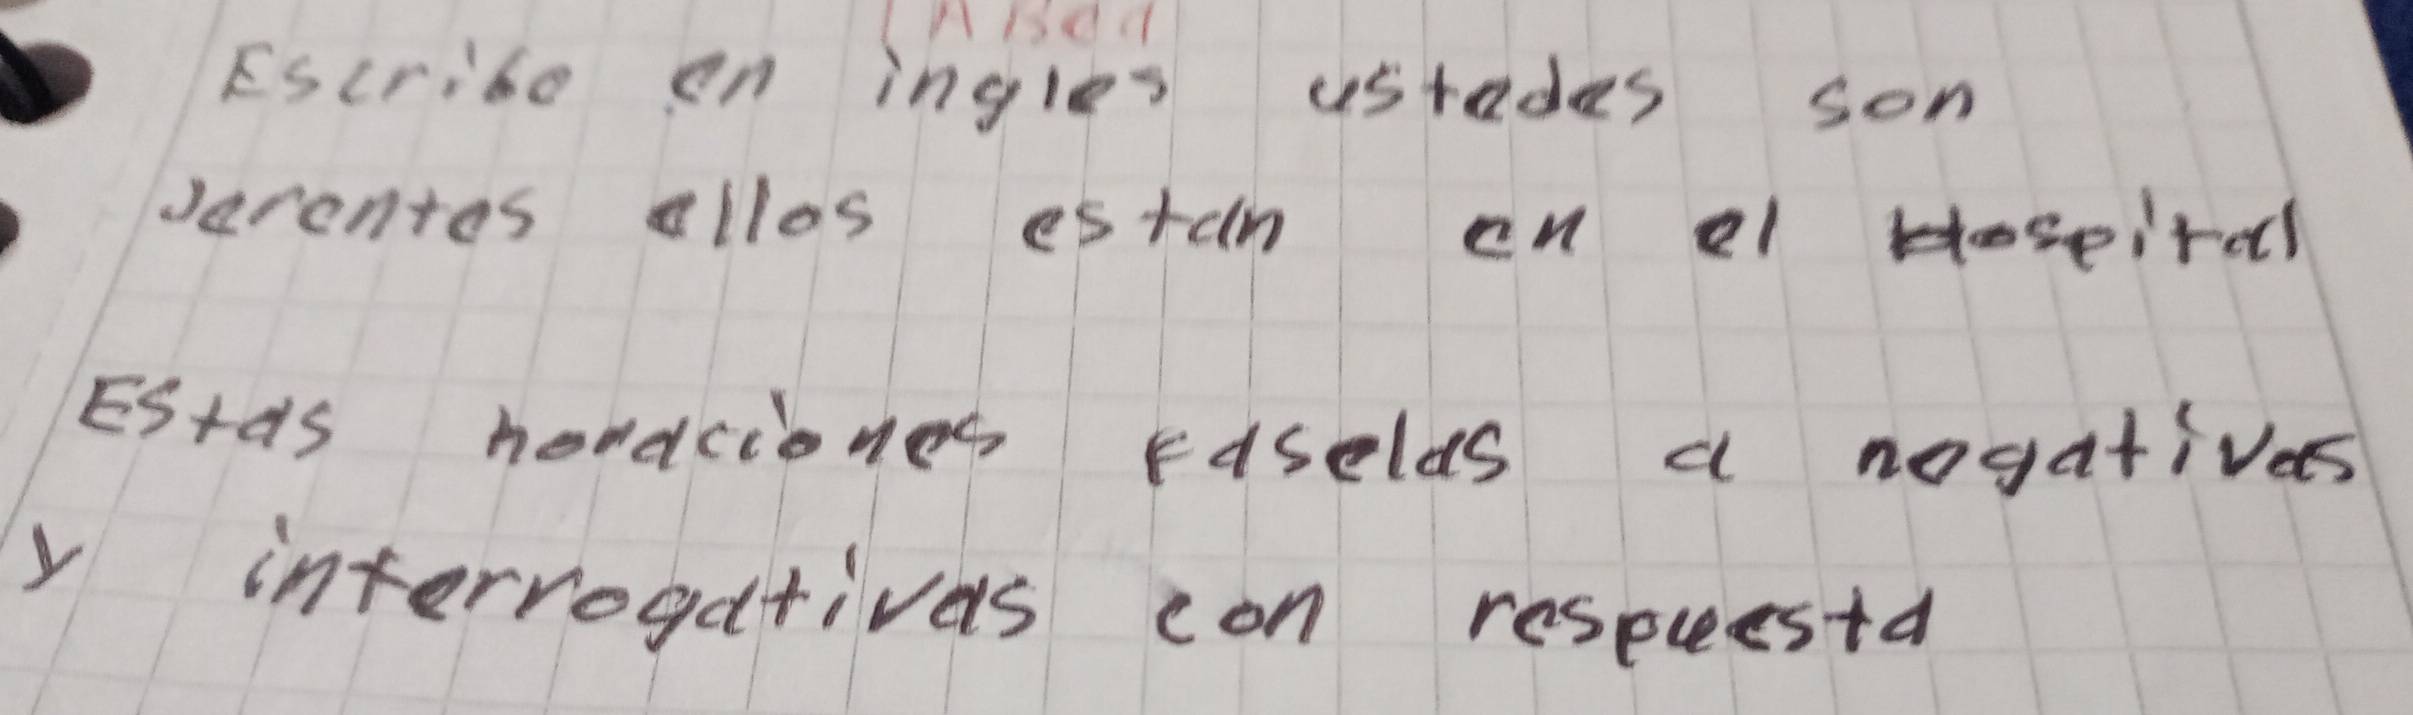 Escribe en ingles ustedes son
Jerentes ellos estan en el Hospital
Estas horaciones Paselas a negativas
y interrogativas con respuesta